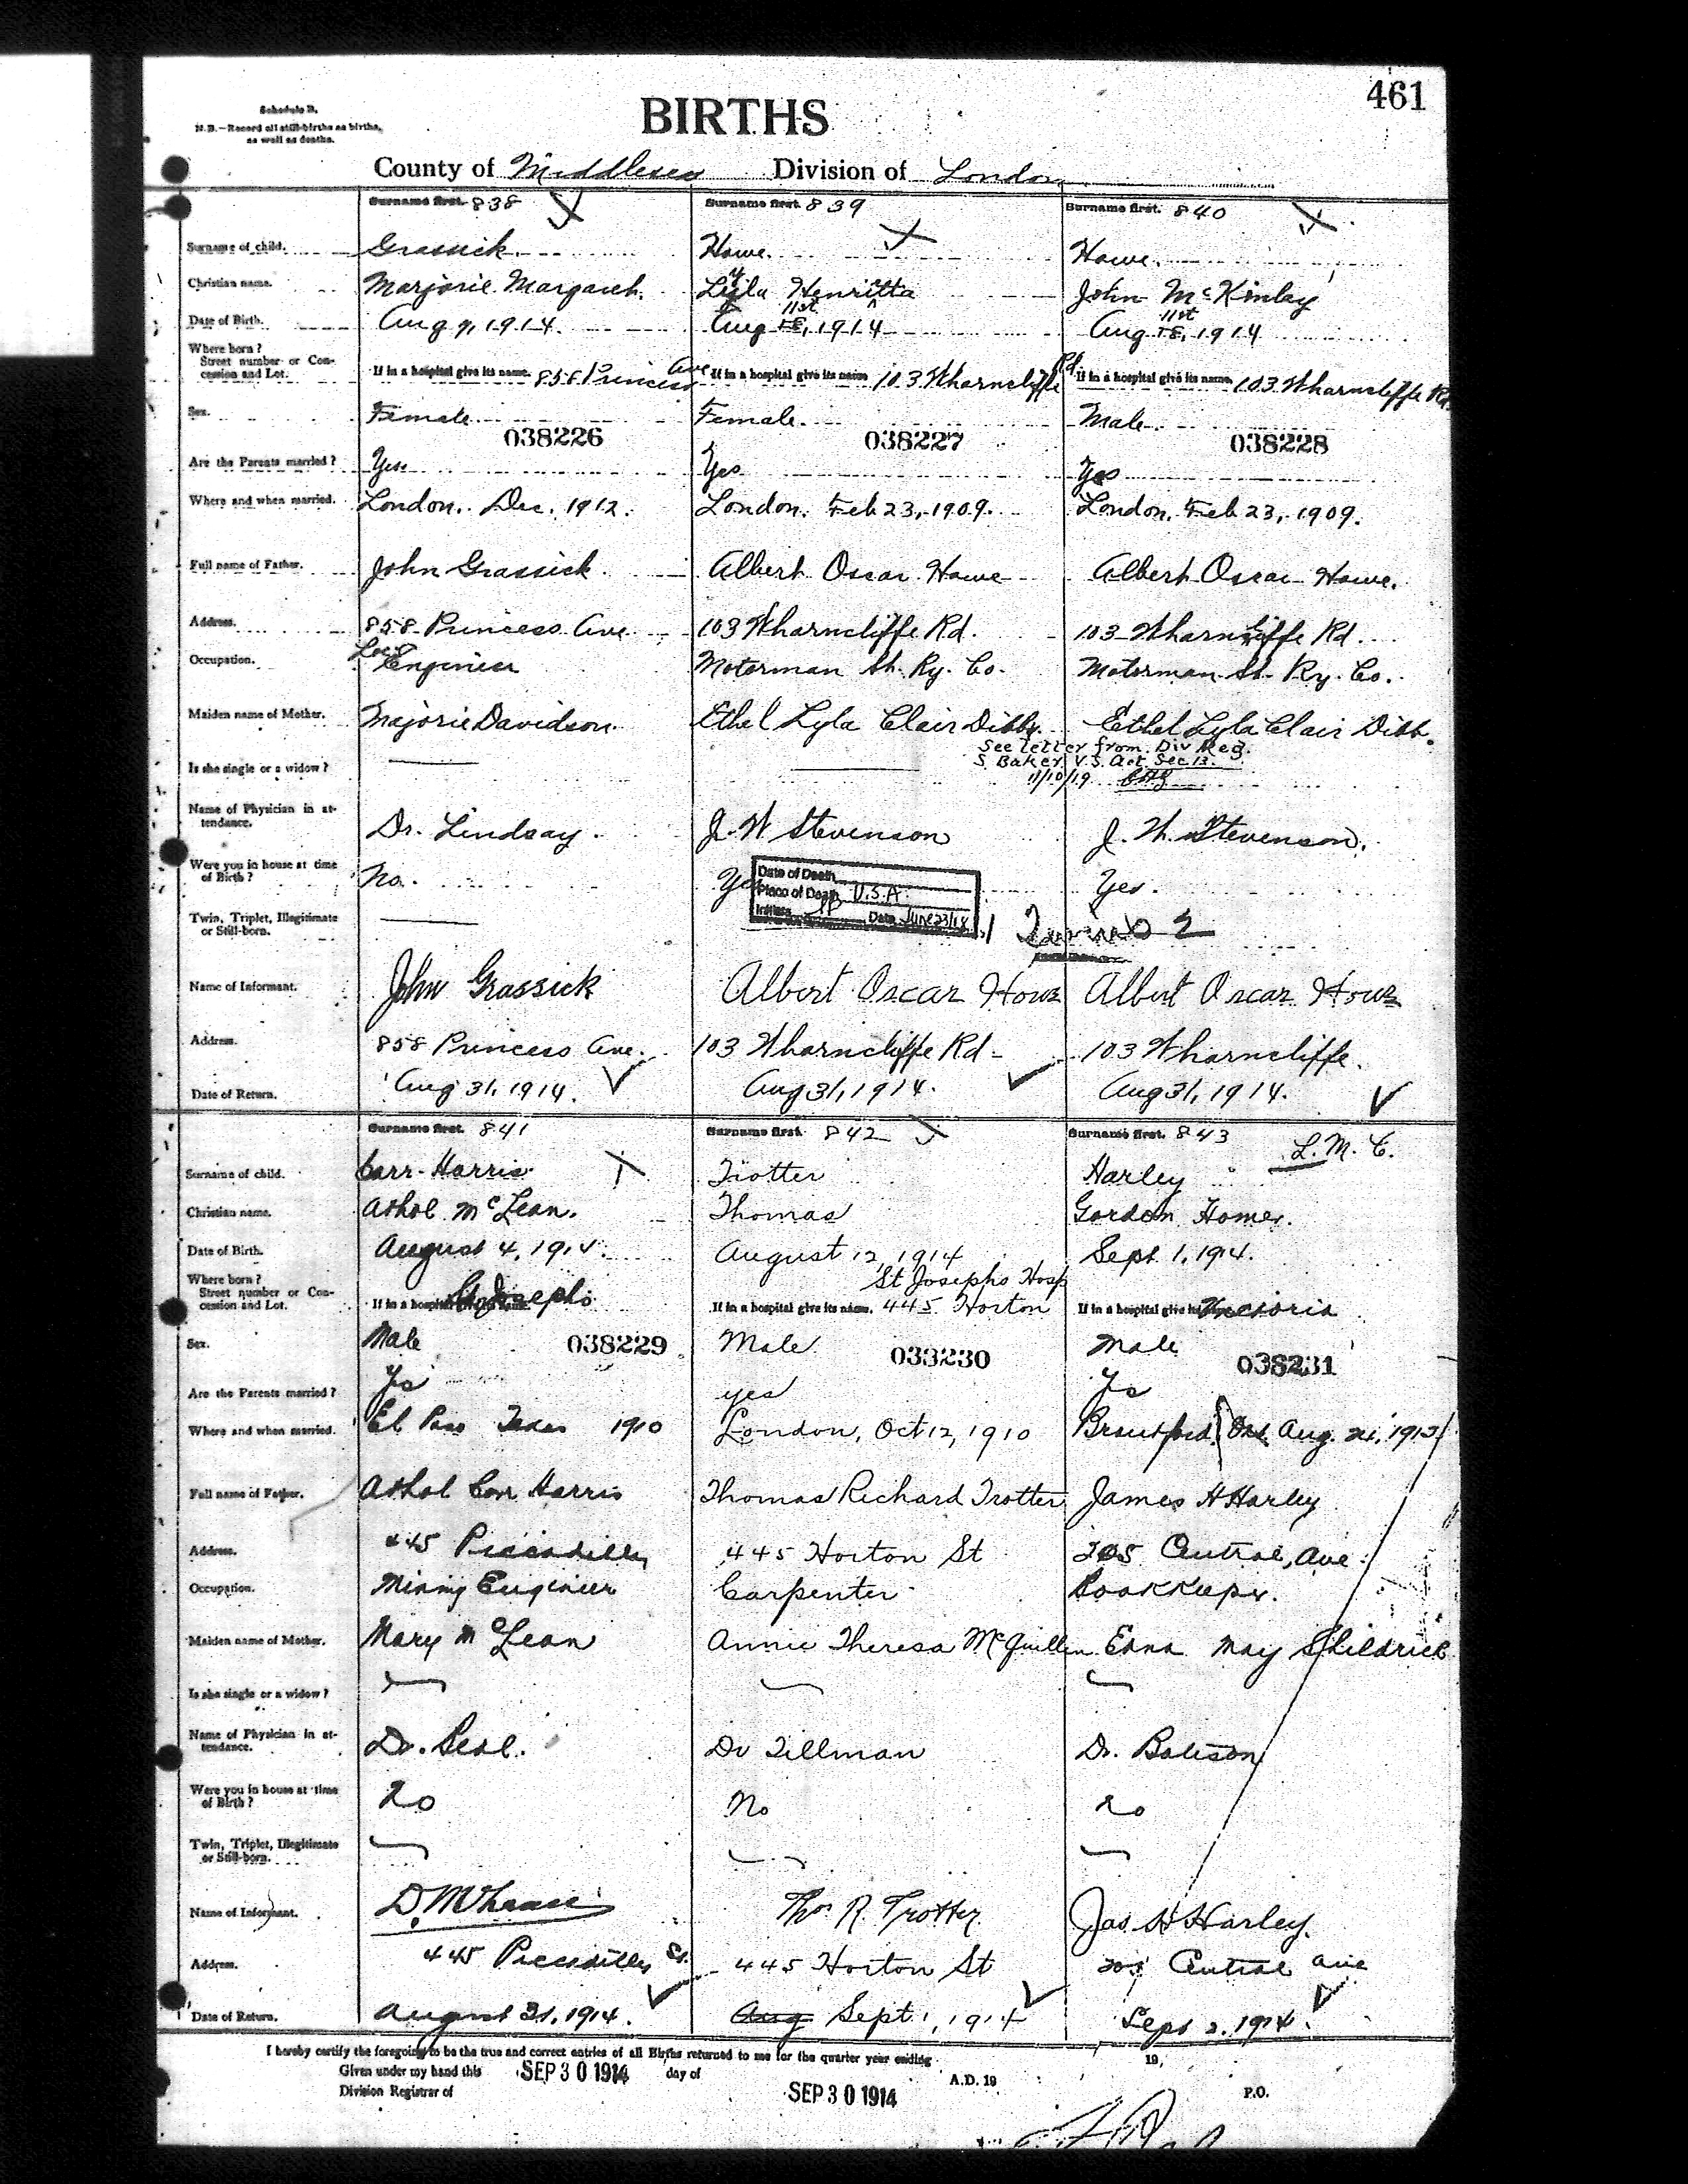 461
Schedule B.
N.B.—Record all still-births as births,
as well as deaths.
BIRTHS
County of Middlesex Division of London
Surname first. 838 Surname first. 839 Surname first. 840
Surname of child. Grassick Howe Howe
Christian name. Marjorie Margaret Lyla Henritta John McKinley
Date of Birth. Aug 9, 1914. Aug 11st, 1914 Aug 11st, 1914
Where born?
Street number or Concession and Lot. If in a hospital give its name. 858 Princess Ave If in a hospital give its name 103 Wharncliffe Rd If in a hospital give its name. 103 Wharncliffe Rd.
Sex. Female Female. Male.
038226 038227 038228
Are the Parents married? Yes. Yes Yes
Where and when married. London. Dec. 1912. London. Feb 23, 1909. London. Feb 23, 1909.
Full name of Father. John Grassick Albert Oscar Howe Albert Oscar Howe.
Address. 858 Princess Ave 103 Wharncliffe Rd. 103 Wharncliffe Rd.
Occupation. Loc. Engineer Motorman St. Ry. Co. Motorman St. Ry. Co.
Maiden name of Mother. Majorie Davidson Ethel Lyla Clair Dibb. Ethel Lyla Clair Dibb.
See letter from Div Reg.
S. Baker V.S. Act Sec 13.
11/10/19
Is she single or a widow?
Name of Physician in attendance. Dr. Lindsay. J. W Stevenson J. W. Stevenson.
Were you in house at time of Birth? No. Yes Yes.
Date of Death
Place of Death U.S.A.
Initials Date June 23/18
Twin, Triplet, Illegitimate or Still-born. 1 Twins 2
Name of Informant. John Grassick Albert Oscar Howe Albert Oscar Howe
Address. 858 Princess Ave. 103 Wharncliffe Rd 103 Wharncliffe.
Date of Return. Aug 31, 1914. Aug 31, 1914. Aug 31, 1914.
Surname first. 841 Surname first. 842 Surname first. 843 L. M. C.
Surname of child. Carr-Harris Trotter Harley
Christian name. Athol McLean. Thomas Gordon Homer.
Date of Birth. August 4, 1914. August 12, 1914 Sept 1, 1914.
Where born?
Street number or Concession and Lot. If in a hospital give its name. St Josephs If in a hospital give its name. St Josephs Hosp 445 Horton If in a hospital give its name Victoria
Sex. Male Male Male
038229 038230 038231
Are the Parents married? Yes yes Yes
Where and when married. El Paso Texas 1910 London, Oct 12, 1910 Brantford, Ont. Aug. 21, 1912
Full name of Father. Athol Carr Harris Thomas Richard Trotter James H Harley
Address. 445 Piccadilly 445 Horton St 205 Central Ave
Occupation. Mining Engineer Carpenter Bookkeeper.
Maiden name of Mother. Mary McLean Annie Theresa McQuillen Edna May Childrick
Is she single or a widow?
Name of Physician in attendance. Dr. Seal. Dr Tillman Dr. Bateson
Were you in house at time of Birth? No No No
Twin, Triplet, Illegitimate or Still-born.
Name of Informant. Thos R. Trotter Jas. H Harley.
Address. 445 Piccadilly St. 445 Horton St 205 Central Ave
Date of Return. August 31, 1914. Aug Sept 1, 1914 Sept 2, 1914.
I hereby certify the foregoing to be the true and correct entries of all Births returned to me for the quarter year ending 19,
Given under my hand this SEP 30 1914 day of SEP 30 1914 A.D. 19
Division Registrar of P.O.